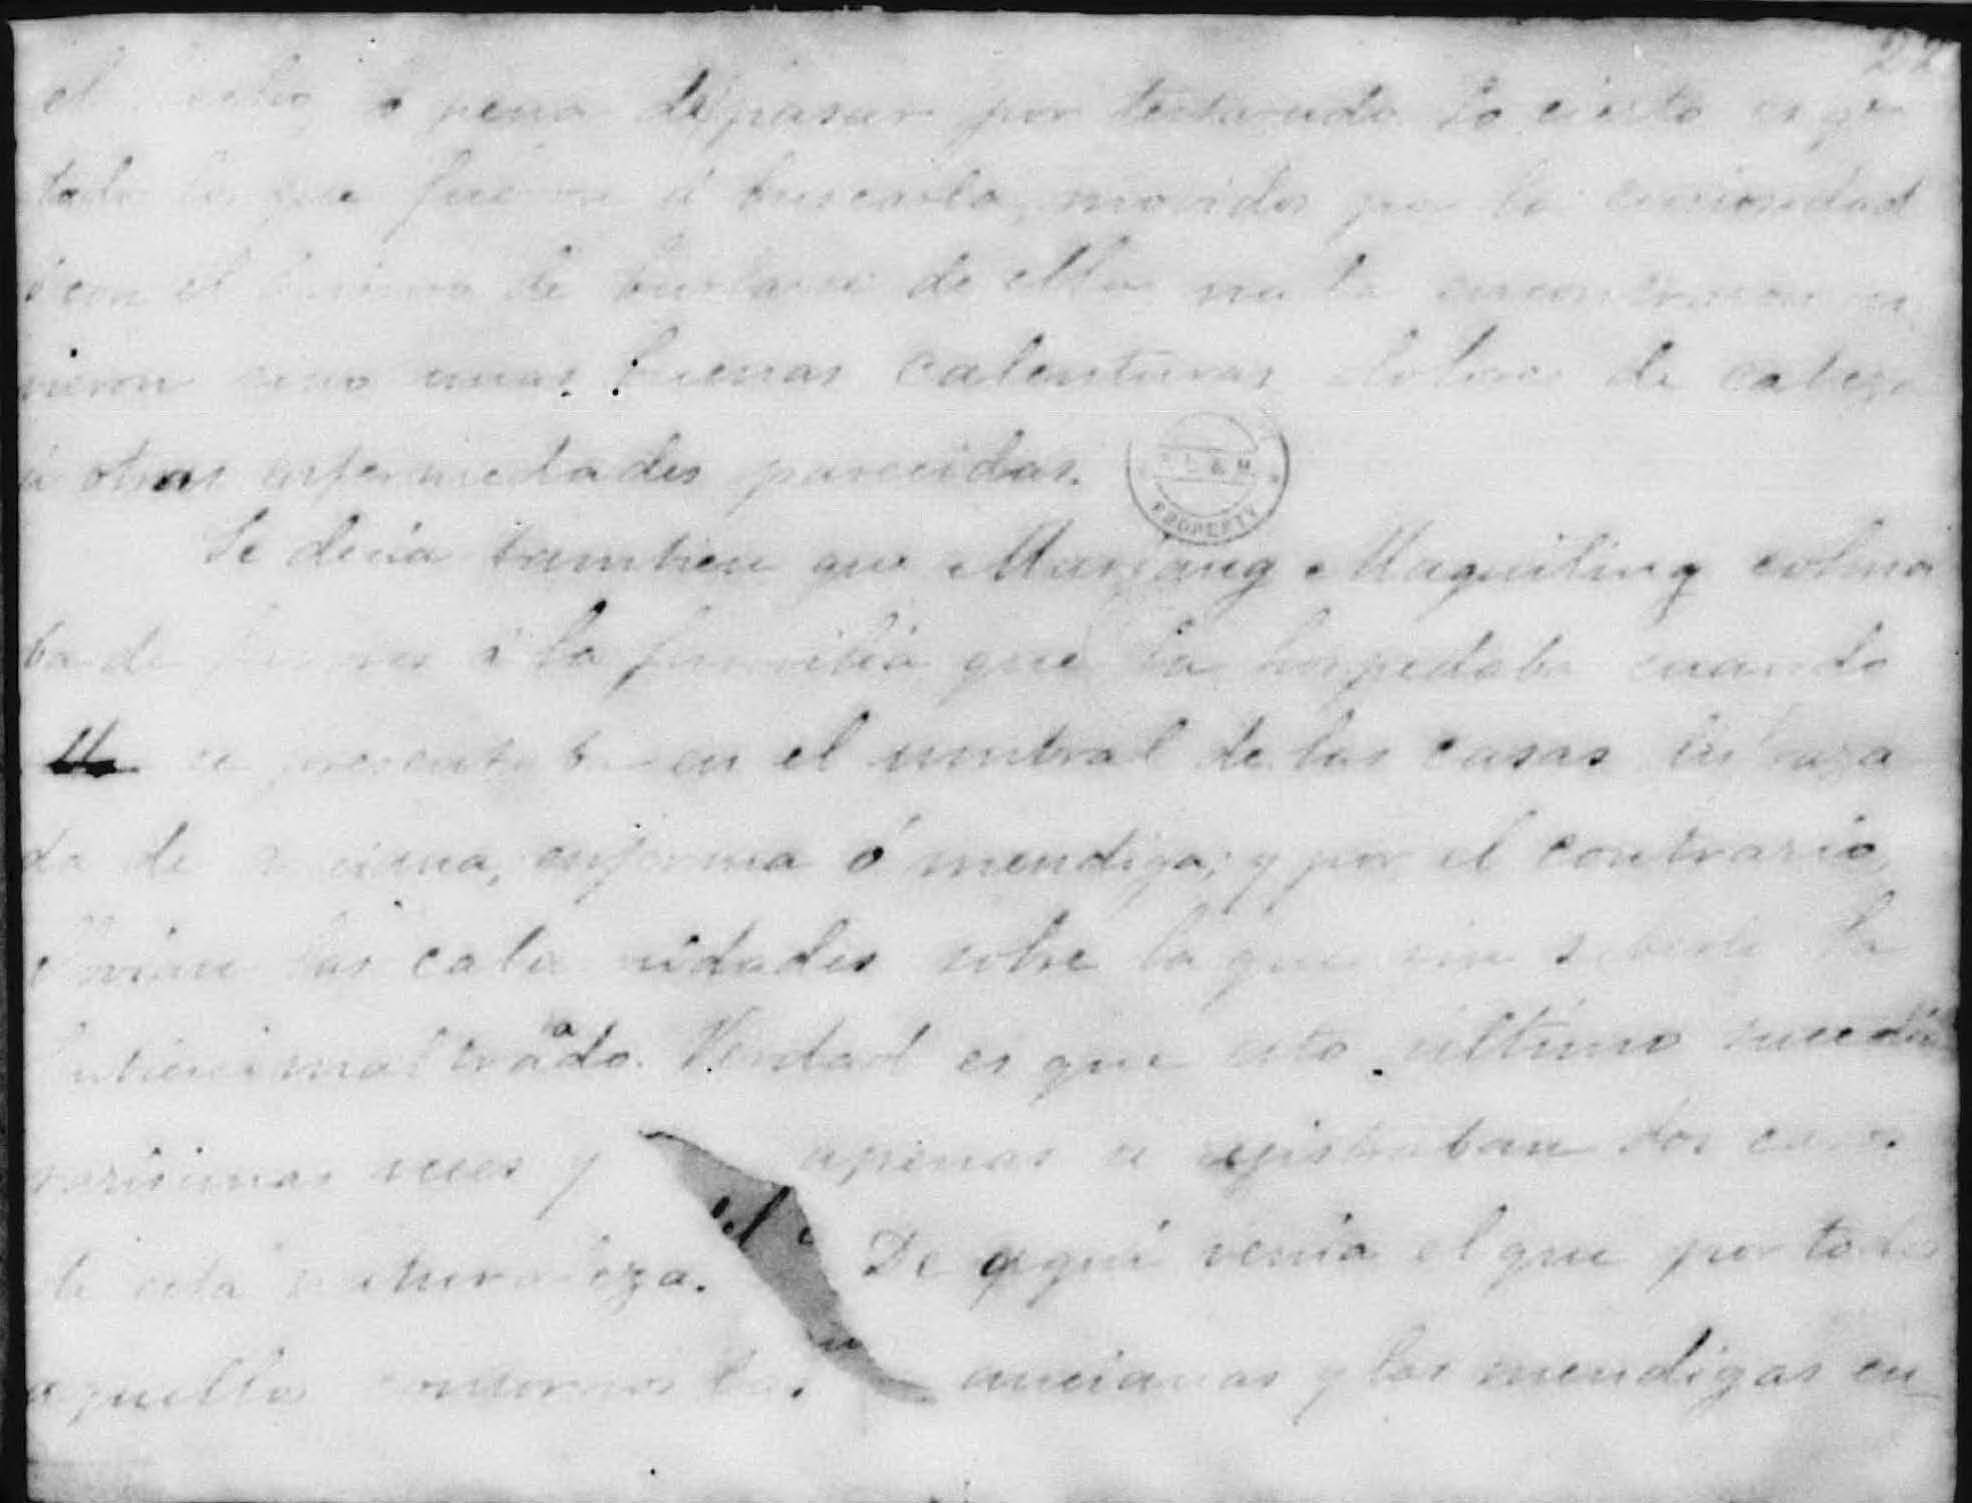 22
el á pena de pasar por testarudo. Lo cierto es qe
todos los que fueron á buscarla, movidos por la curiosidad
ó con el de burlarse de ella no la encontraron ni
vieron sino unas buenas calenturas dolores de cabeza
ú otras enfermedades parecidas.
Se decía tambien que Mariang Maquiling colma
ba de á la familia que la hospedaba cuando
se presentaba en el umbral de las casas disfraza
da de anciana, enferma ó mendiga; y por el contrario,
llovian las calamidades sobre la que sin saberlo la
hubiese maltratado. Verdad es que esto último sucedía
rarísimas veces y apenas se registraban dos casos
de esta naturaleza. De aquí venía el que por todos
aquellos contornos las ancianas y las mendigas en
PROPERTY